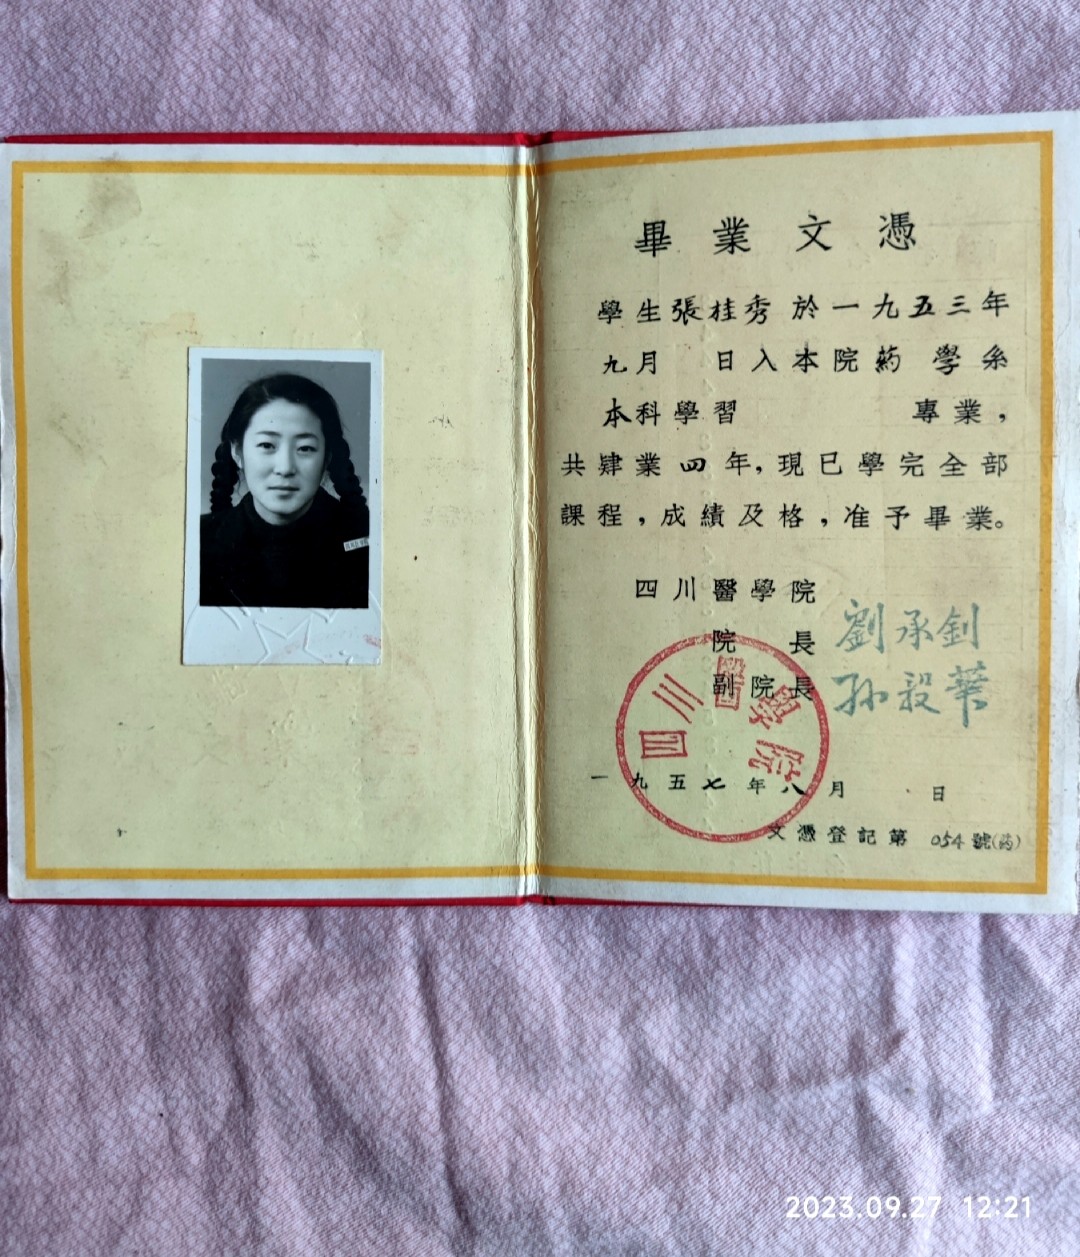 畢業文憑
學生張桂秀於一九五三年
九月 日入本院药學系
本科學習 專業，
共肄業四年，現已學完全部
課程，成績及格，准予畢業。
四川醫學院
院長 劉承釗
副院長 孙毅華
四川醫學院
一九五七年八月 日
文憑登記第 054 號(药)
2023.09.27 12:21